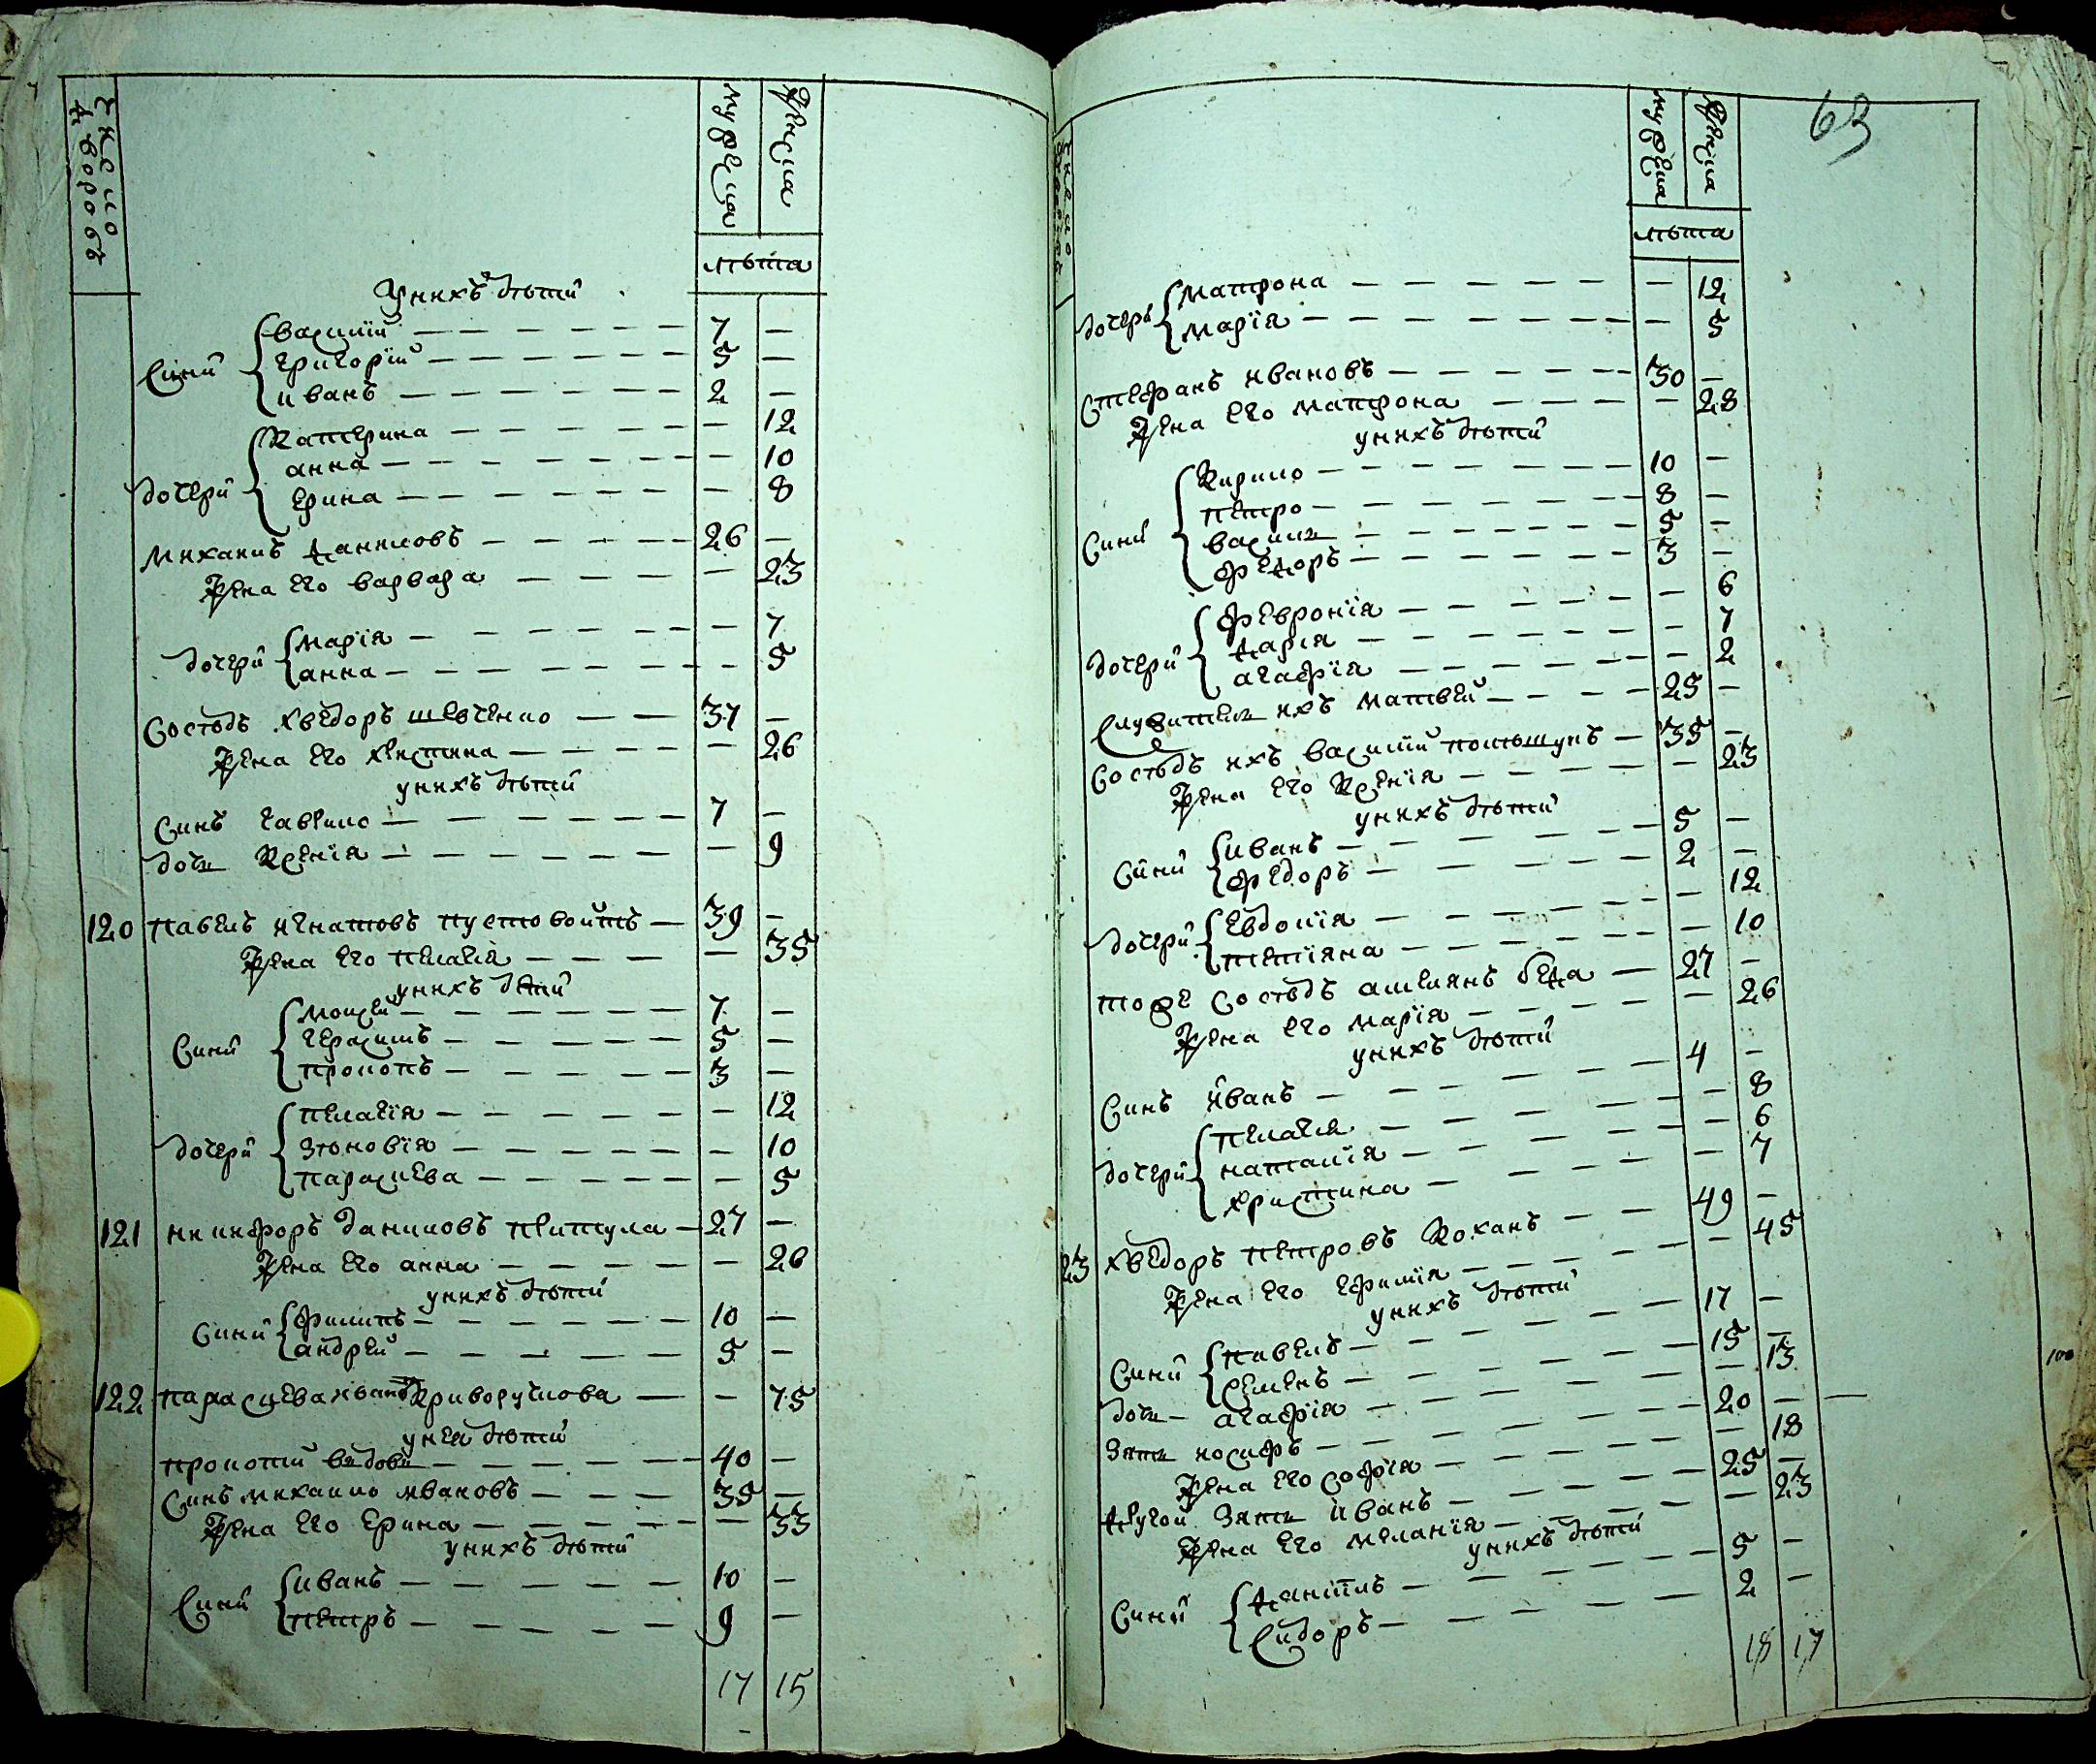 число дворовъ
мужеска
женска
лѣта
У нихъ дѣти
Сини
василій — 7 —
григорій — 5 —
иванъ — 2 —
дочери
Катерина — 12
анна — 10
ерина — 8
михаилъ даниловъ — 26 —
жена его варвара — 23
дочери
марія — 7
анна — 5
Сосѣдъ хведоръ шевченко — 37 —
жена его христина — 26
у нихъ дѣти
Синъ гаврило — 7 —
дочь Ксенія — 9
120 павелъ игнатовъ пустовойтъ — 39 —
жена его пелагія — 35
у нихъ дѣти
Сини
мойсей — 7 —
герасимъ — 5 —
прокопъ — 3 —
дочери
пелагія — 12
зѣновія — 10
параскева — 5
121 никифоръ даниловъ — 27 —
жена его анна — 26
у нихъ дѣти
Сини
филипъ — 10 —
андрей — 5 —
122 параскева иванова Криворучкова — 75
у нея дѣти
прокопій вдовъ — 40 —
Синъ михайло ивановъ — 35 —
жена его ерина — 33
у нихъ дѣти
Сини
иванъ — 10 —
петръ — 9 —
17 15
63
число дворовъ
мужеска
женска
лѣта
дочери
матрона — 12
марія — 5
Стефанъ ивановъ — 30 —
жена его матрона — 28
у нихъ дѣти
Сини
Кирило — 10 —
петро — 8 —
василь — 5 —
федоръ — 3 —
дочери
февронія — 6
дарія — 7
агафія — 2
Служитель ихъ матвей — 25 —
Сосѣдъ ихъ василій — 35 —
жена его Ксенія — 23
у нихъ дѣти
Сини
иванъ — 5 —
федоръ — 2 —
дочери
евдокія — 12
тетіяна — 10
тоже сосѣдъ — 27 —
жена его марія — 26
у нихъ дѣти
Синъ иванъ — 4 —
дочери
пелагея — 8
наталія — 6
христина — 7
23 хведоръ петровъ Коханъ — 49 —
жена его ефимія — 45
у нихъ дѣти
Сини
павелъ — 17 —
семенъ — 15 —
дочь — агафія — 13
зять иосифъ — 20 —
жена его софія — 18
другой зять иванъ — 25 —
жена его меланія — 23
у нихъ дѣти
Сини
даніилъ — 5 —
сидоръ — 2 —
18 17